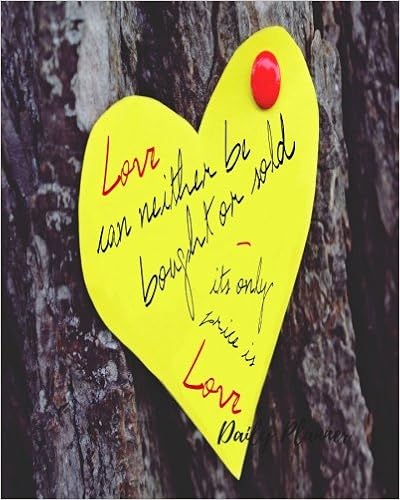 Love
can neither be
bought or sold
-
its only
price is
Love
Daily Planner